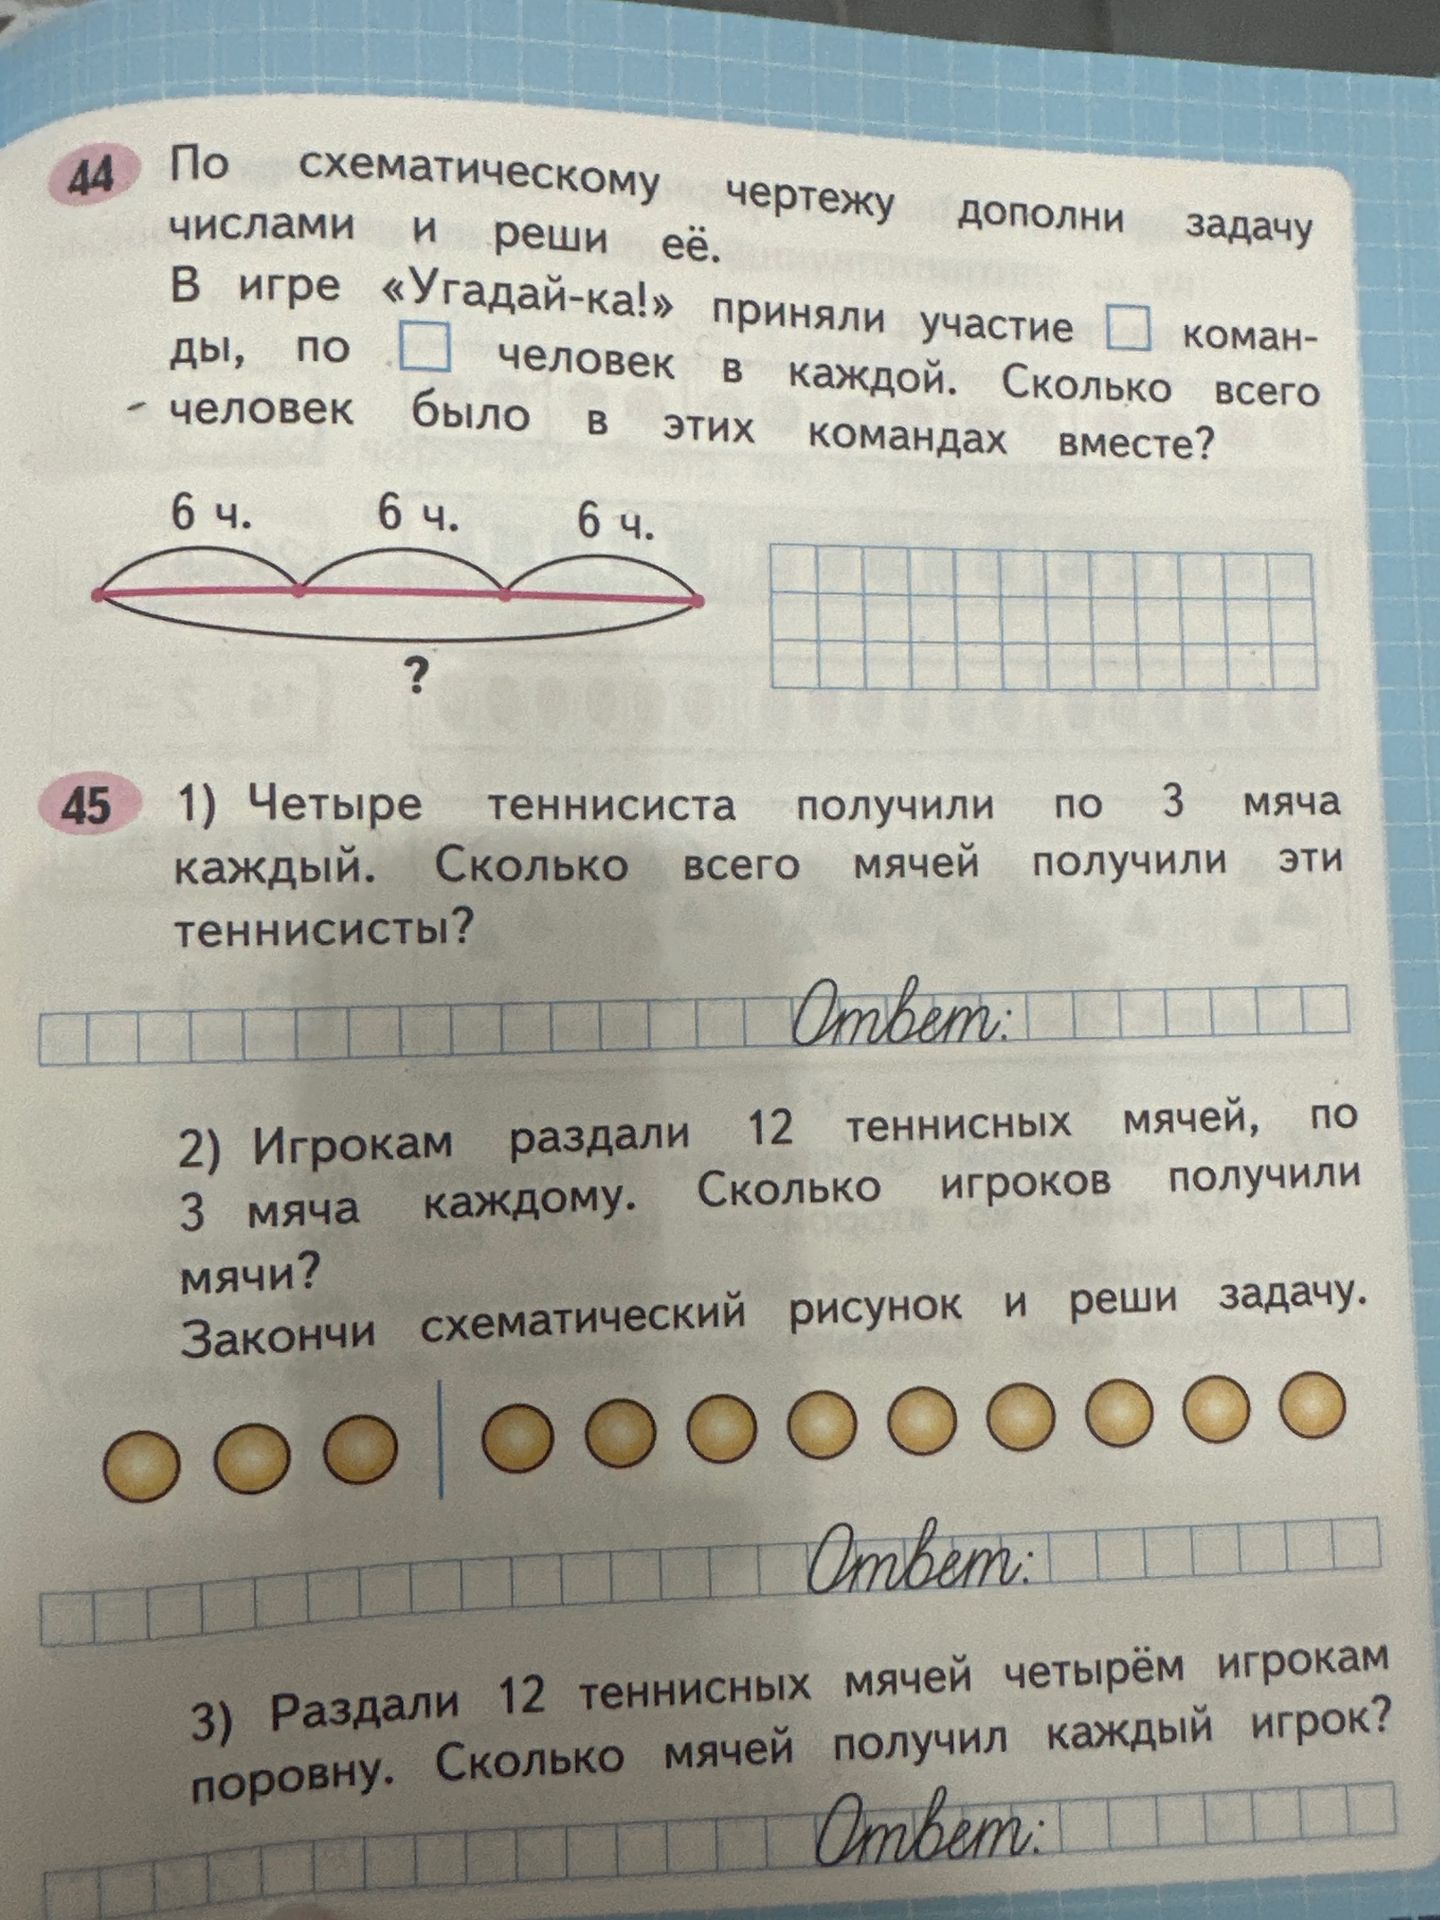 44 По схематическому чертежу дополни задачу
числами и реши её.
В игре «Угадай-ка!» приняли участие коман-
ды, по человек в каждой. Сколько всего
человек было в этих командах вместе?
6 ч. 6 ч. 6 ч.
?
45 1) Четыре теннисиста получили по 3 мяча
каждый. Сколько всего мячей получили эти
теннисисты?
Ответ:
2) Игрокам раздали 12 теннисных мячей, по
3 мяча каждому. Сколько игроков получили
мячи?
Закончи схематический рисунок и реши задачу.
Ответ:
3) Раздали 12 теннисных мячей четырём игрокам
поровну. Сколько мячей получил каждый игрок?
Ответ: